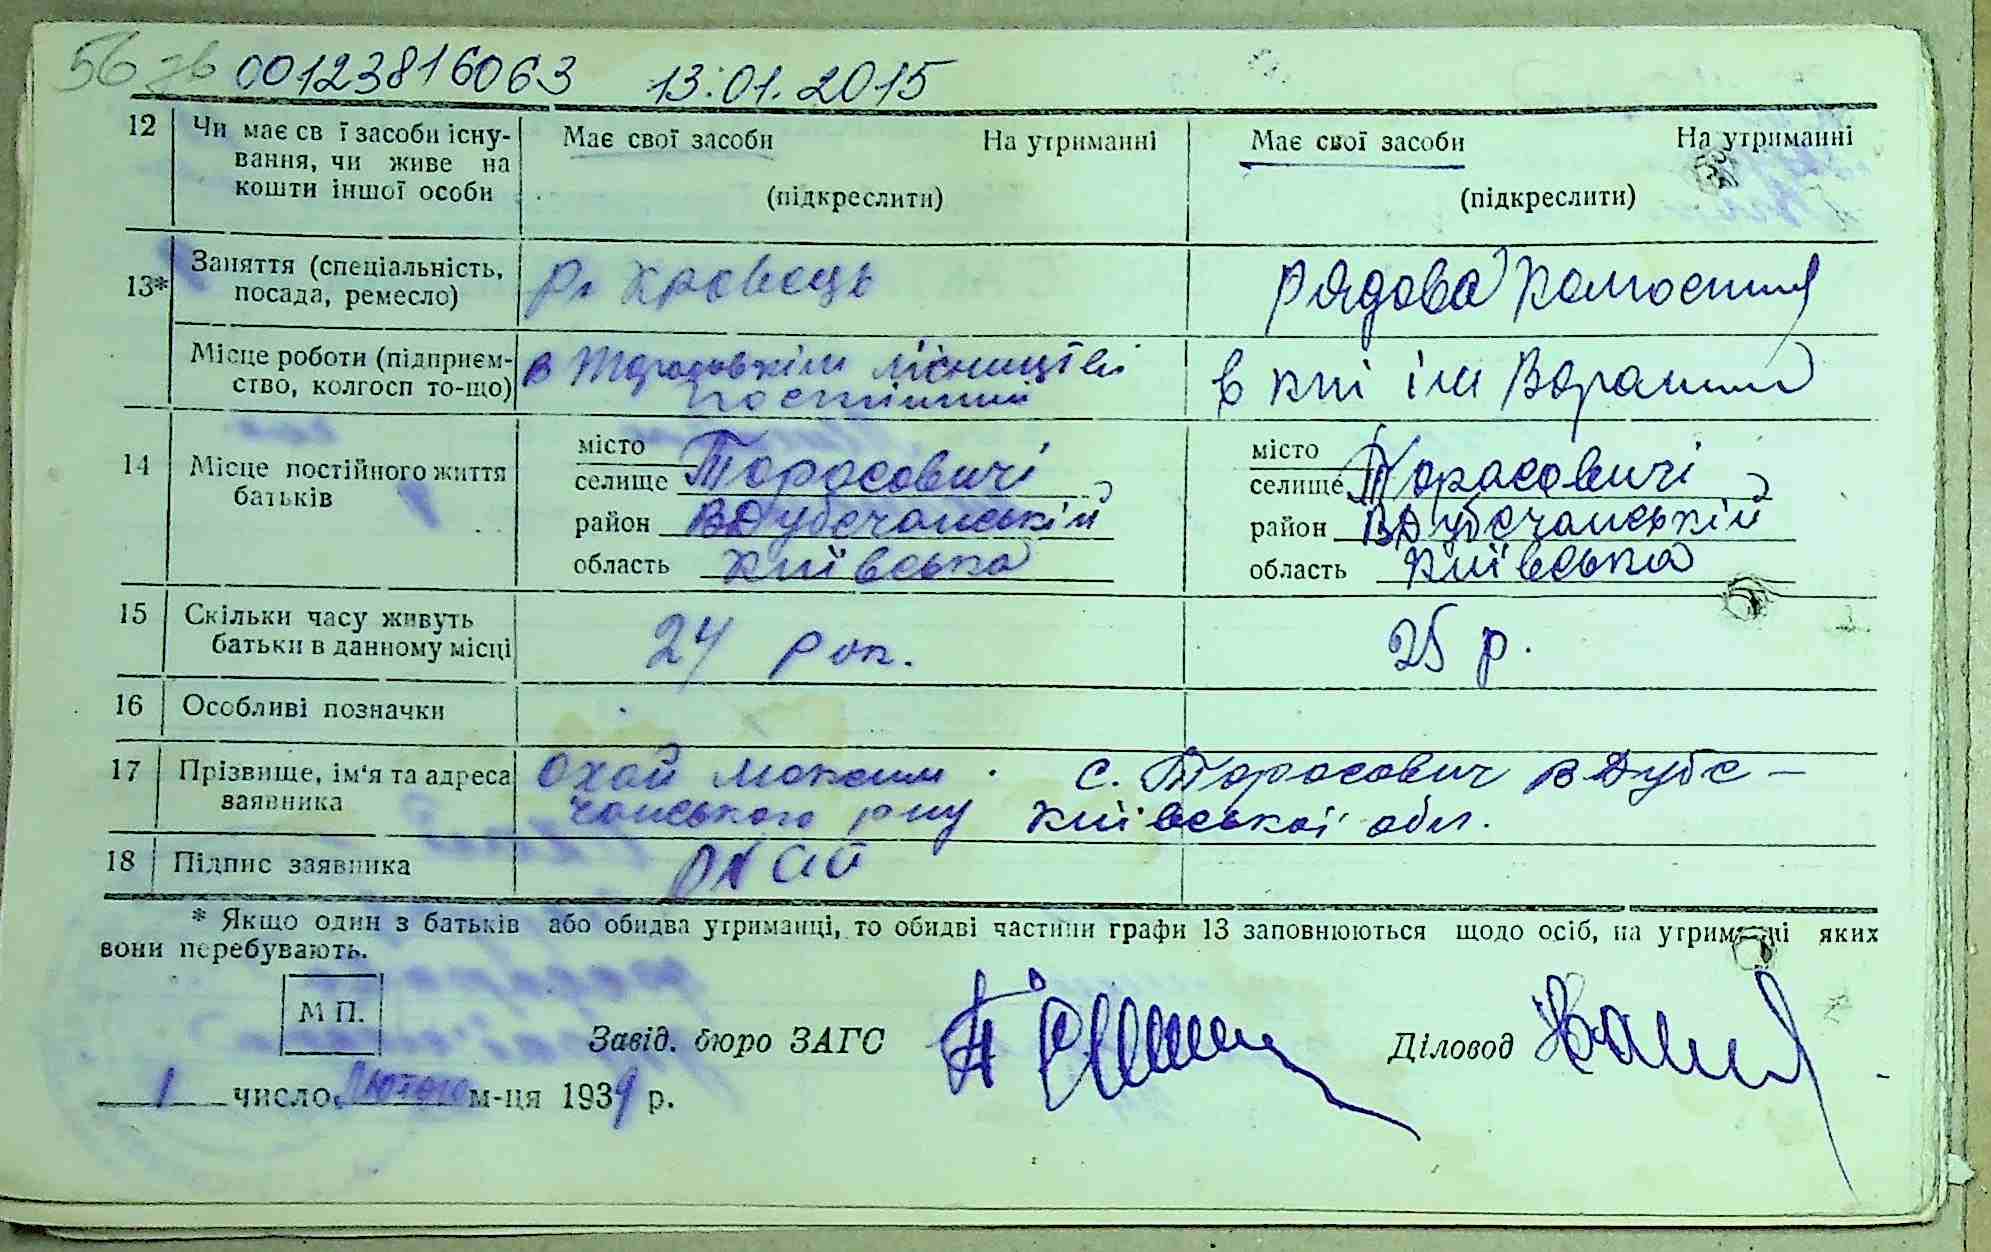 56 зв 00123816063 13.01.2015
12 Чи має св ї засоби існу- Має свої засоби На утриманні Має свої засоби На утриманні
вання, чи живе на
кошти іншої особи (підкреслити) (підкреслити)
13* Заняття (спеціальність, рядова колгоспниця
посада, ремесло)
Місце роботи (підприєм- в Тарасовскім лісництві в клі ім
ство, колгосп то-що) постійний
14 Місце постійного життя місто Тарасовичі місто Тарасовичі
батьків селище селище
район ВДубечанській район ВДубечанській
область Київська область Київська
15 Скільки часу живуть 24 рок. 25 р.
батьки в данному місці
16 Особливі позначки
17 Прізвище, ім'я та адреса Охай Максим с. Тарасович ВДубе-
заявника чанського рну Київської обл.
18 Підпис заявника Охай
* Якщо один з батьків або обидва утриманці, то обидві частини графи 13 заповнюються щодо осіб, на утриманні яких
вони перебувають.
М П.
Завід. бюро ЗАГС Діловод
1 число лютого м-ця 1939 р.